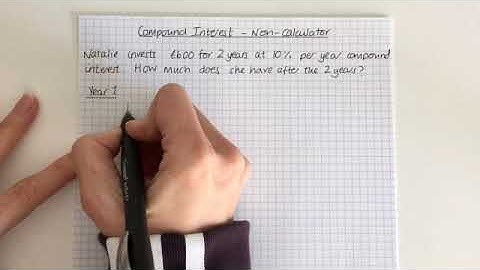 Compound Interest - Non-Calculator
Natalie invests £600 for 2 years at 10% per year compound
interest. How much does she have after the 2 years?
Year 1